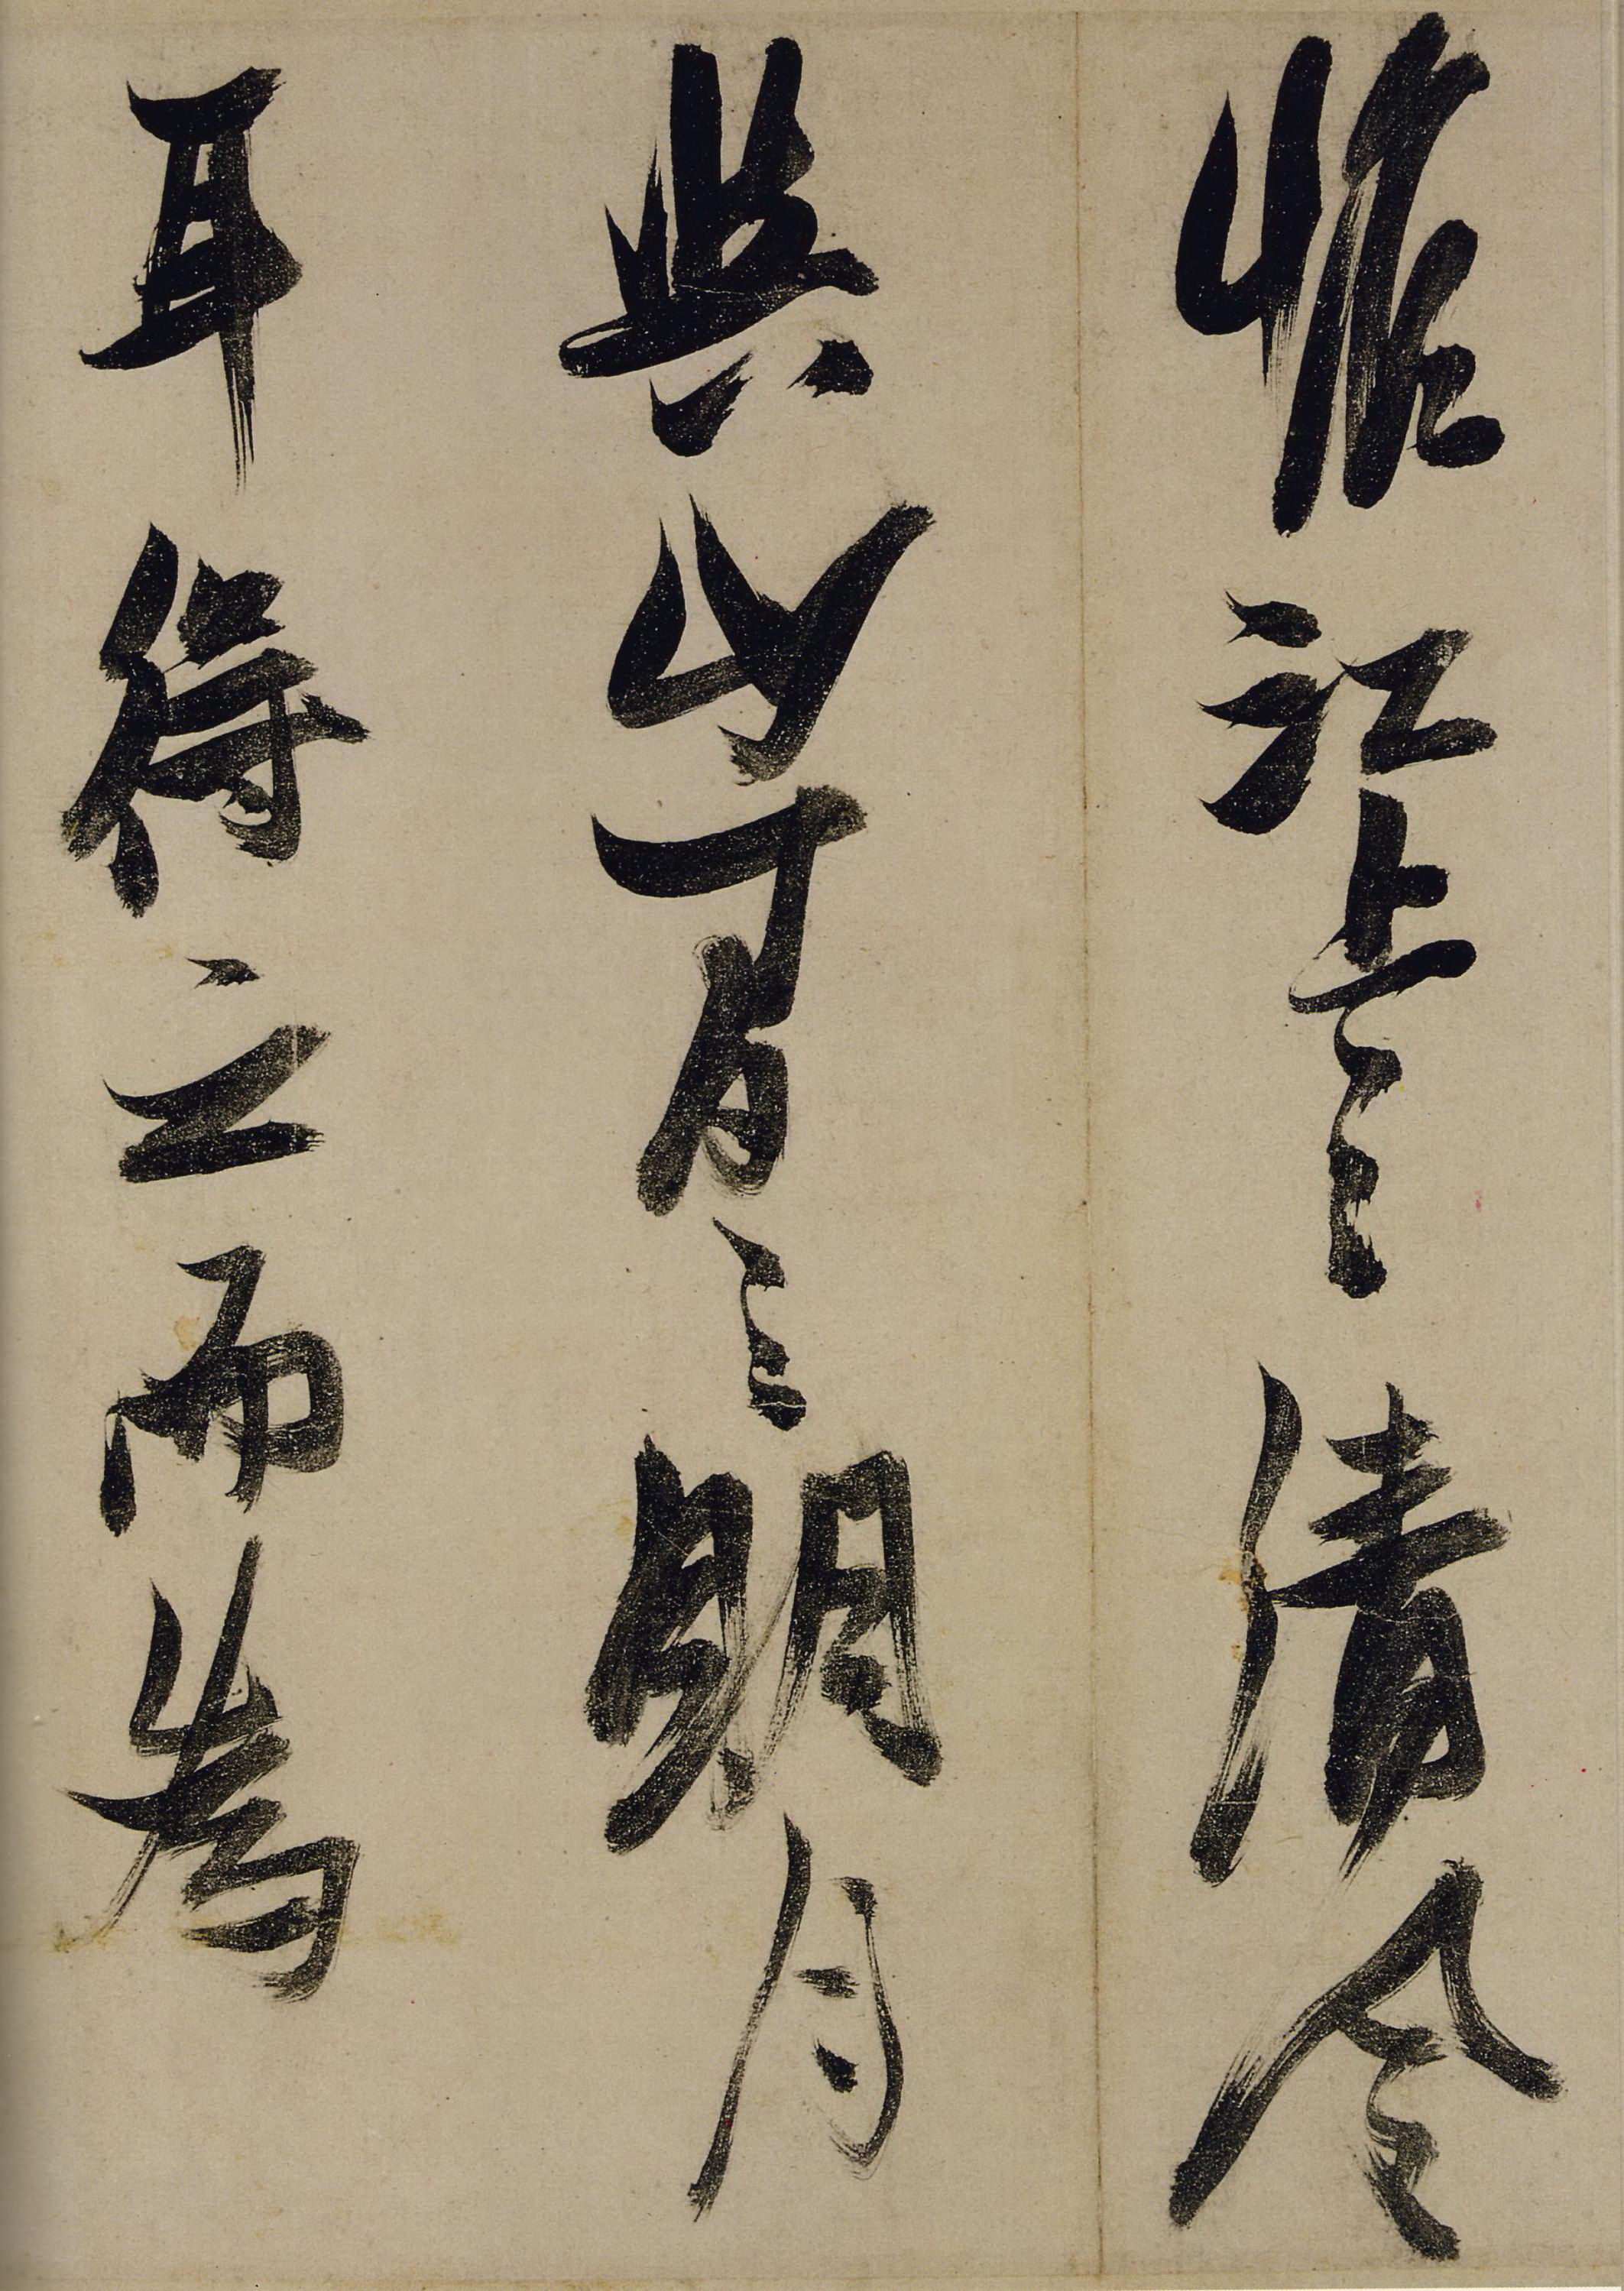 惟江上之清風
與山間之明月
耳得之而為